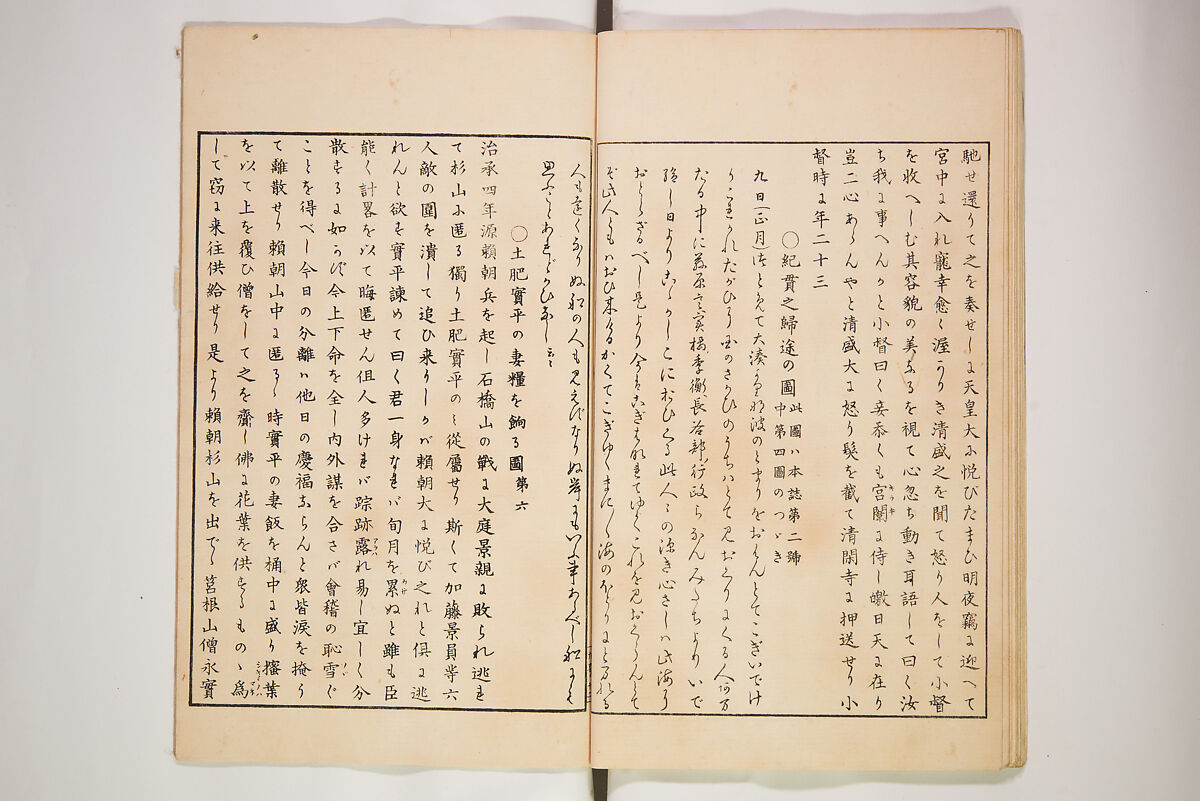 馳せ還りて之を奏せしに天皇大に悦びたまひ明夜竊に迎へて
宮中に入れ寵幸愈く渥かりき清盛之を聞て怒り人をして小督
を收へしむ其容貌の美なるを視て心忽ち動き耳語して曰く汝
ち我に事へんかと小督曰く妾忝くも宮闈に侍し皦日天に在り
豈二心あらんやと清盛大に怒り髮を截て清閑寺に押送せり小
督時に年二十三
〇紀貫之歸途の圖 此圖ハ本誌第二號
中第四圖のつゞき
九日(正月)つとめて大湊より那波のとまりをおはんとてこぎいでけ
りこれかれたがひに國のさかひのうちハとて見おくりにくる人あま
たが中に藤原言實橘季衡長谷部行政らなんみたちよりいで
給し日よりこゝかしこにおひくる此人々の深き心ざしハ此海に
おとらざるべし是より今はこぎはなれてゆくこれを見おくらんとて
ぞ此人どもハおひ來けるかくてこぎゆくまに〳〵海のほとりにとまれる
人も遠くなりぬ船の人も見えずなりぬ岸にもいふ事あるべし船にも
思ふことあれどかひなし云々
〇土肥實平の妻糧を餉る圖 第六
治承四年源賴朝兵を起し石橋山の戰に大庭景親に敗られ逃を
て杉山に匿る獨り土肥實平のミ從屬せり斯くて加藤景員等六
人敵の圍を潰して追ひ来りしかバ賴朝大に悦び之れと倶に逃
れんと欲す實平諫めて曰く君一身なれバ旬月を累ぬと雖も臣
能く計畧を以て晦匿せん但人多けれバ踪跡露れ易し宜しく分
散するに如かず今上下命を全し内外謀を合さバ會稽の恥雪ぐ
ことを得べし今日の分離ハ他日の慶福ならんと衆皆涙を掩う
て離散せり賴朝山中に匿るゝ時實平の妻飯を桶中に盛り樒葉
を以て上を覆ひ僧をして之を齋し佛に花葉を供するものゝ爲
して窃に来往供給せり是より賴朝杉山を出でゝ筥根山僧永實